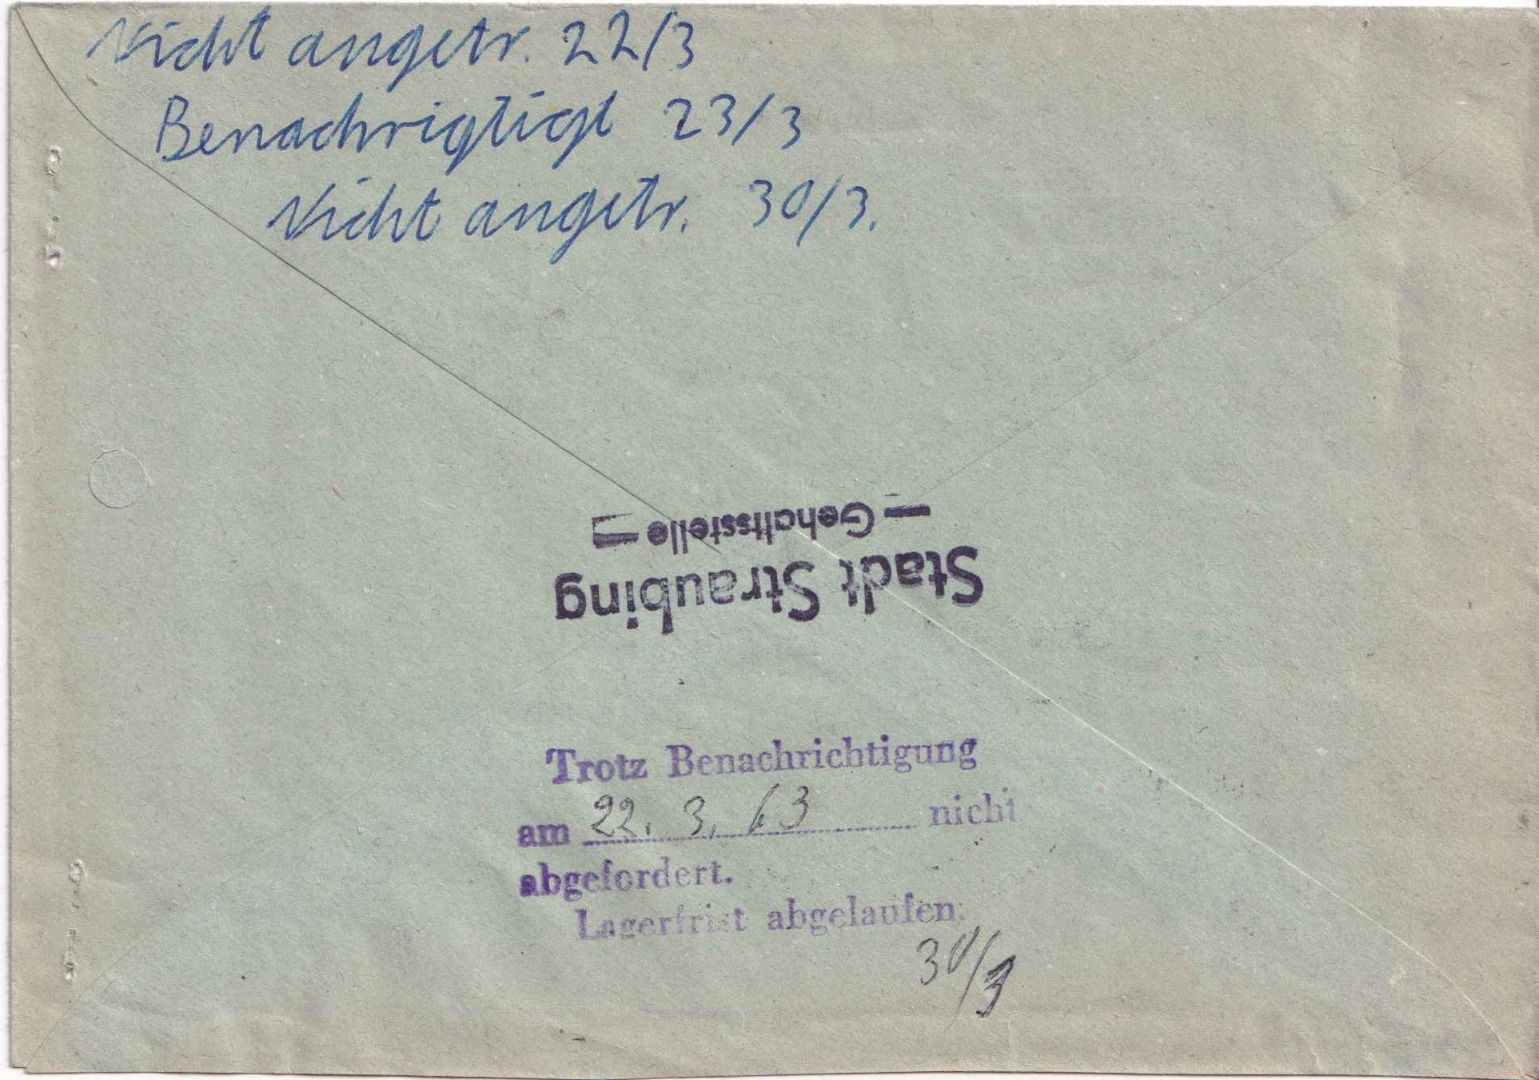 Nicht angetr. 22/3
Benachrigtigt 23/3
Nicht angetr. 30/3.
Stadt Straubing
— Gehaltsstelle —
Trotz Benachrichtigung
am 22. 3. 63 nicht
abgefordert.
Lagerfrist abgelaufen.
30/3